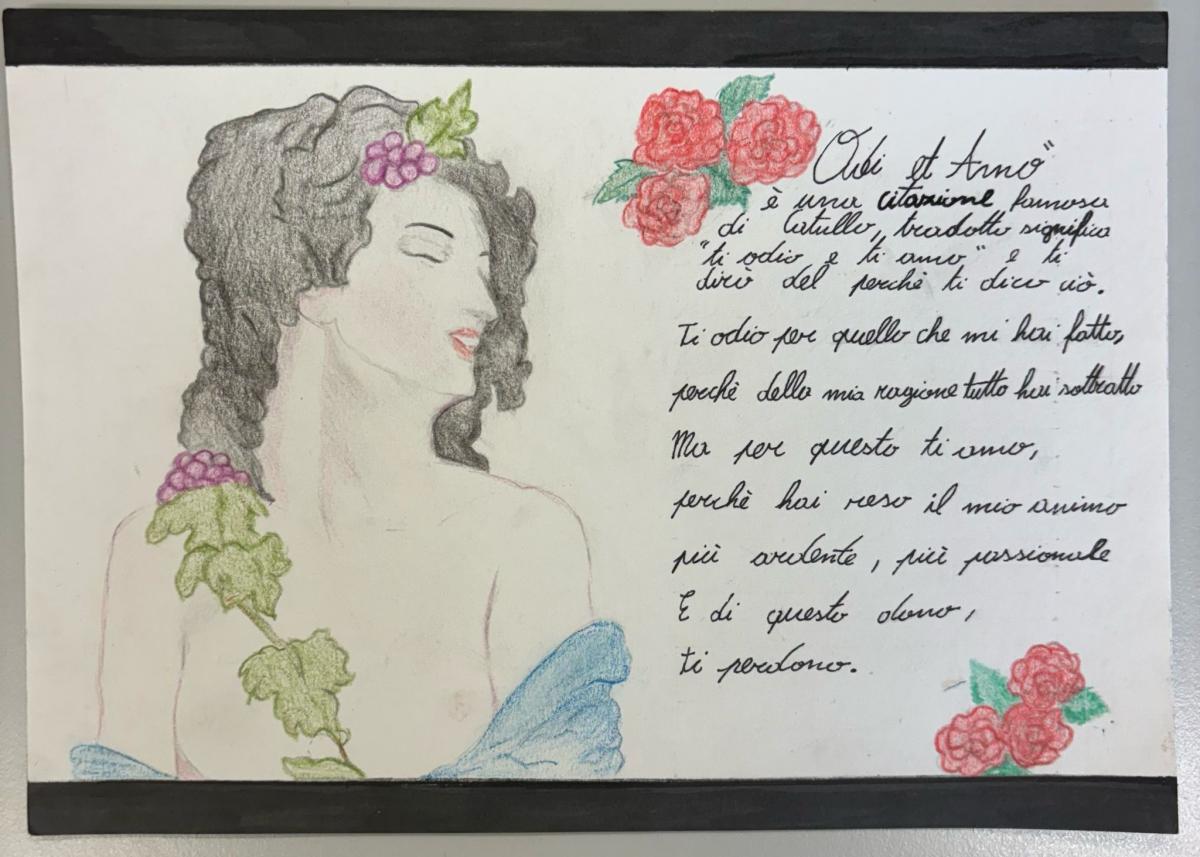 Odi et Amo"
è una citazione famosa
di Catullo, tradotto significa
"ti odio e ti amo" e ti
dirò del perchè ti dico ciò.
Ti odio per quello che mi hai fatto,
perchè della mia ragione tutto hai sottratto
Ma per questo ti amo,
perchè hai reso il mio animo
più ardente, più passionale
E di questo dono,
ti perdono.